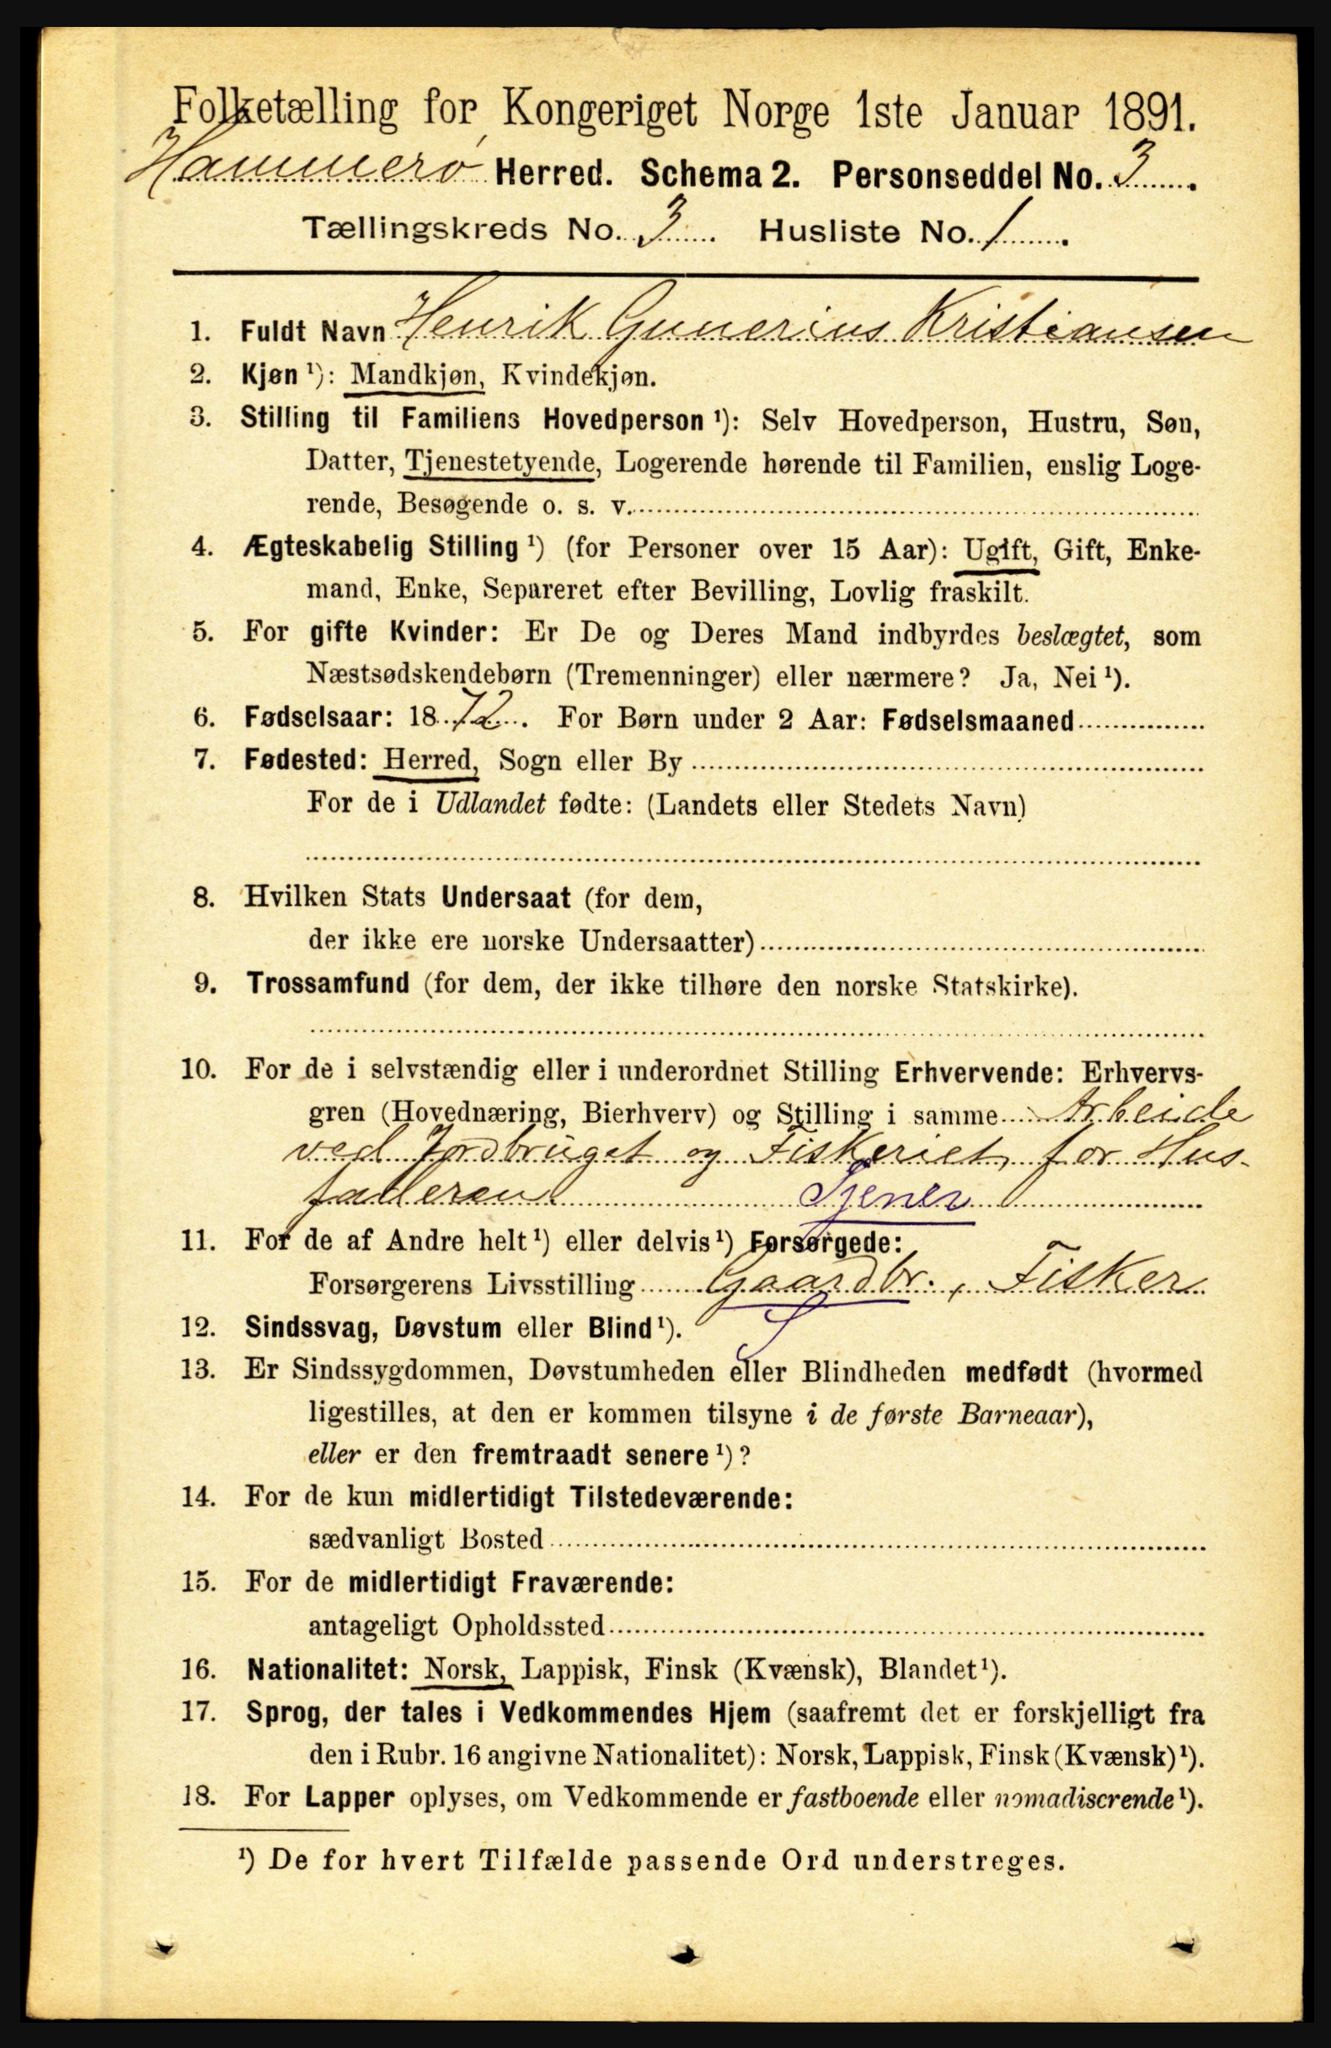 Folketælling for Kongeriget Norge 1ste Januar 1891.
Hammerø Herred. Schema 2. Personseddel No. 3.
Tællingskreds No. 3. Husliste No. 1.
1. Fuldt Navn Henrik Gunerius Kristiansen
2. Kjøn ¹): Mandkjøn, Kvindekjøn.
3. Stilling til Familiens Hovedperson ¹): Selv Hovedperson, Hustru, Søn,
Datter, Tjenestetyende, Logerende hørende til Familien, enslig Loge-
rende, Besøgende o. s. v.
4. Ægteskabelig Stilling ¹) (for Personer over 15 Aar): Ugift, Gift, Enke-
mand, Enke, Separeret efter Bevilling, Lovlig fraskilt.
5. For gifte Kvinder: Er De og Deres Mand indbyrdes beslægtet, som
Næstsødskendebørn (Tremenninger) eller nærmere? Ja, Nei ¹).
6. Fødselsaar: 1872. For Børn under 2 Aar: Fødselsmaaned
7. Fødested: Herred, Sogn eller By
For de i Udlandet fødte: (Landets eller Stedets Navn)
8. Hvilken Stats Undersaat (for dem,
der ikke ere norske Undersaatter)
9. Trossamfund (for dem, der ikke tilhøre den norske Statskirke).
10. For de i selvstændig eller i underordnet Stilling Erhvervende: Erhvervs-
gren (Hovednæring, Bierhverv) og Stilling i samme Arbeide
ved Jordbruget og Fiskeriet for Hus-
faderen Tjener
11. For de af Andre helt ¹) eller delvis ¹) Forsørgede:
Forsørgerens Livsstilling Gaardbr., Fisker
12. Sindssvag, Døvstum eller Blind ¹). S
13. Er Sindssygdommen, Døvstumheden eller Blindheden medfødt (hvormed
ligestilles, at den er kommen tilsyne i de første Barneaar),
eller er den fremtraadt senere ¹)?
14. For de kun midlertidigt Tilstedeværende:
sædvanligt Bosted
15. For de midlertidigt Fraværende:
antageligt Opholdssted
16. Nationalitet: Norsk, Lappisk, Finsk (Kvænsk), Blandet ¹).
17. Sprog, der tales i Vedkommendes Hjem (saafremt det er forskjelligt fra
den i Rubr. 16 angivne Nationalitet): Norsk, Lappisk, Finsk (Kvænsk) ¹).
18. For Lapper oplyses, om Vedkommende er fastboende eller nomadiserende ¹).
¹) De for hvert Tilfælde passende Ord understreges.